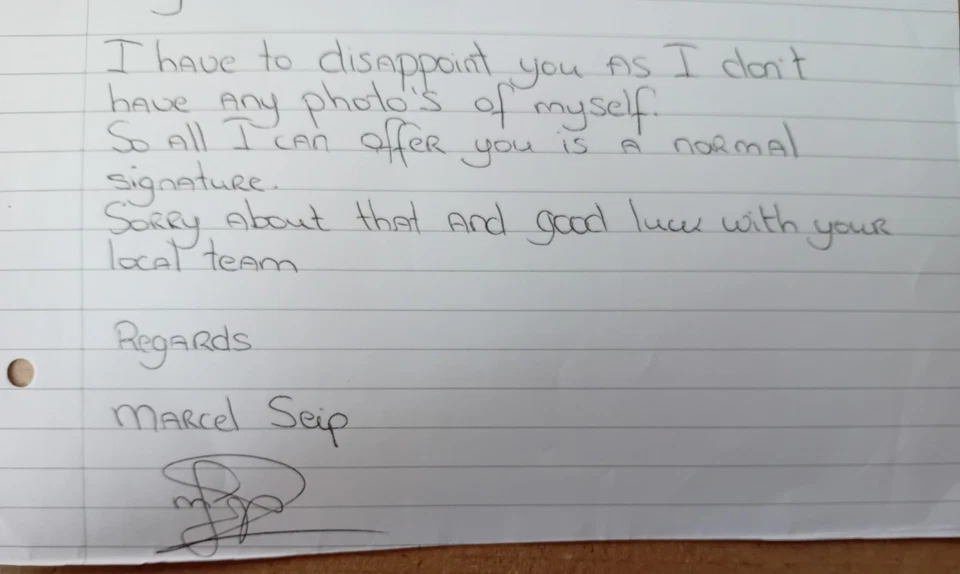 I have to disappoint you as I don't
have any photo's of myself.
So all I can offer you is a normal
signature.
Sorry about that and good luck with your
local team
Regards
Marcel Seip